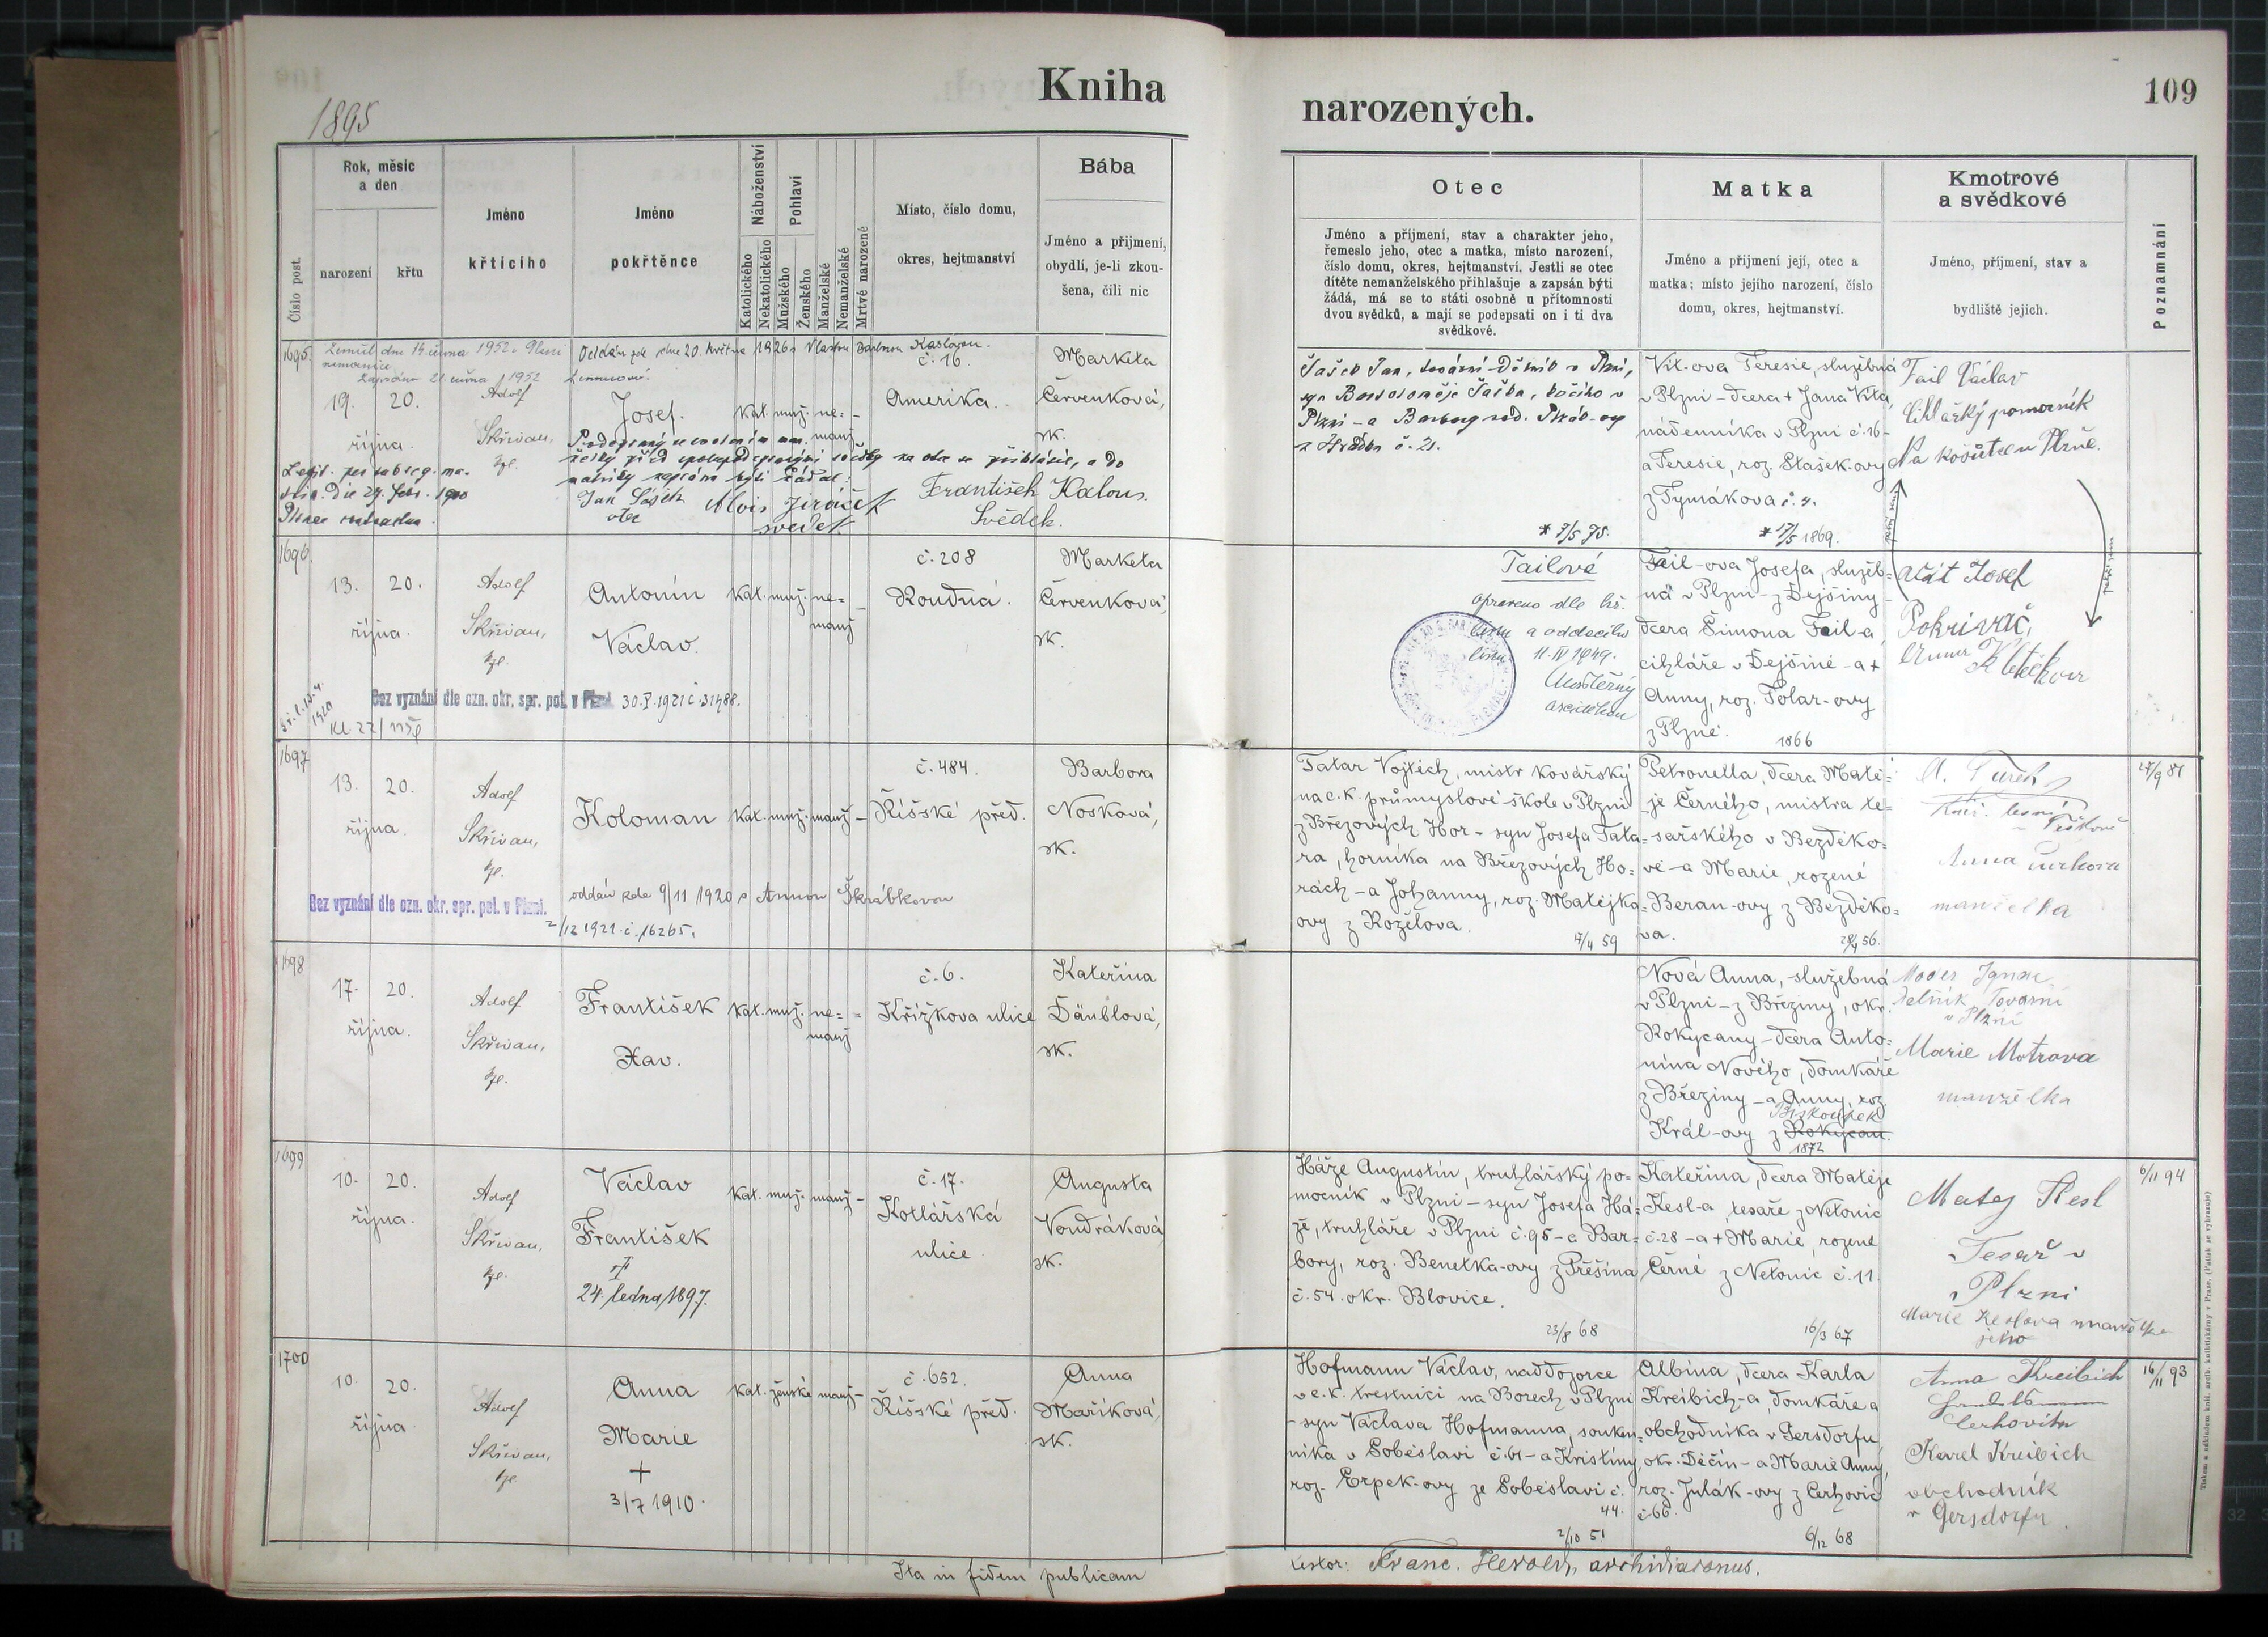 Kniha
narozených.
109
1895
Číslo post.
Rok, měsíc
a den
narození
křtu
Jméno
křtícího
Jméno
pokřtěnce
Náboženství
Katolického
Nekatolického
Pohlaví
Mužského
Ženského
Manželské
Nemanželské
Mrtvě narozené
Místo, číslo domu,
okres, hejtmanství
Bába
Jméno a přijmení,
obydlí, je-li zkou-
šena, čili nic
Otec
Jméno a příjmení, stav a charakter jeho,
řemeslo jeho, otec a matka, místo narození,
číslo domu, okres, hejtmanství. Jestli se otec
dítěte nemanželského přihlašuje a zapsán býti
žádá, má se to státi osobně u přítomnosti
dvou svědků, a mají se podepsati on i ti dva
svědkové.
Matka
Jméno a přijmení její, otec a
matka; místo jejího narození, číslo
domu, okres, hejtmanství.
Kmotrové
a svědkové
Jméno, příjmení, stav a
bydliště jejich.
Poznamnání
1695.
Zemřel dne 14. června 1952 v Plzni
nemocnice
21. června 1952
Oddán zde dne 20. května 1926 s Vlastou Barborou
19. 20.
října.
Adolf
Skřivan,
kpl.
Josef.
kat. muž. ne-
manž.
č. 16.
Amerika.
Marketa
Červenková,
zk.
Jan Šašek
otec
Alois Jiráček
svědek
František Kalous.
Svědek.
Šašek Jan, tovární dělník v Plzni,
syn Bartoloměje Šaška, kočího v
Plzni - a Barbory rod.
z Hrádku č. 21.
* 7/5 75.
Vít-ova Teresie, služebná
v Plzni - dcera + Jana Víta,
nádenníka v Plzni č. 16 -
a Teresie, roz. Stašek-ovy
z Tymákova č. 4.
* 17/5 1869.
Fail Václav
Cihlářský pomocník
Na košutce u Plzně.
1696.
13. 20.
října.
Adolf
Skřivan,
kpl.
Antonín
Václav.
kat. muž. ne-
manž
č. 208
Roudná.
Marketa
Červenková,
zk.
Bez vyznání dle ozn. okr. spr. pol. v Plzni 30.X.1921 č. 31488.
Failové
opraveno dle kř.
listu a oddacího
listu 11. IV 1949.
Fail-ova Josefa, služeb-
ná v Plzni - z Dejšiny -
dcera Šimona Fail-a,
cihláře v Dejšině - a +
Anny, roz. Tolar-ovy
z Plzně.
1866
Josef
Pokrivač,
1697
13. 20.
října.
Adolf
Skřivan,
kpl.
Koloman
kat. muž. manž. -
č. 484.
Říšské před.
Barbora
Nosková,
zk.
Bez vyznání dle ozn. okr. spr. pol. v Plzni.
2/12 1921. č. 16265.
oddán zde 9/11 1920 s Annou Škrábkovou
Tatar Vojtěch, mistr kovářský
na c. k. průmyslové škole v Plzni
z Březových Hor - syn Josefa Tata-
ra, horníka na Březových Ho-
rách - a Johanny, roz. Matějka-
ovy z Roželova.
17/4 59
Petronella, dcera Matě-
je Černého, mistra te-
sařského v Bezděko-
vě - a Marie, rozené
Beran-ovy z Bezděko-
va.
28/4 56.
Anna
manželka
17/9 81
1698
17. 20.
října.
Adolf
Skřivan,
kpl.
František
Xav.
kat. muž. ne-
manž
č. 6.
Křížkova ulice
Kateřina
Däublová,
zk.
Nová Anna, služebná
v Plzni - z Březiny, okr.
Rokycany - dcera Anto-
nína Nového, domkáře
z Březiny - a Anny, roz.
Biskoupek
Král-ovy z Rokycan.
1872
dělník tovární
v Plzni
Marie Motrova
manželka
1699
10. 20.
října.
Adolf
Skřivan,
kpl.
Václav
František
24. ledna 1897.
kat. muž. manž. -
č. 17.
Kotlářská
ulice.
Augusta
Vondráková
zk.
Háze Augustin, truhlářský po-
mocník v Plzni - syn Josefa Há-
ze, truhláře v Plzni č. 95 - a Bar-
bory, roz. Benetka-ovy z Přešína
č. 54. okr. Blovice.
23/8 68
Kateřina, dcera Matěje
Kesl-a, tesaře z Netonic
č. 28 - a + Marie, rozené
Černé z Netonic č. 11.
16/3 67
Matej Kesl
Tesař v
Plzni
Marie Keslova manželka
jeho
6/11 94
1700
10. 20.
října
Adolf
Skřivan,
kpl
Anna
Marie
+
3/7 1910.
kat. ženské manž -
č. 652.
Říšské před.
Anna
Maříková,
zk.
Hofmann Václav, naddozorce
v c. k. trestnici na Borech v Plzni
- syn Václava Hofmanna, souken-
níka v Soběslavi č. 61 - a Kristiny,
roz. Erpek-ovy ze Soběslavi č.
44.
2/10 51
Albina, dcera Karla
Kreibich-a, domkáře a
obchodníka v Gersdorfu,
okr. Děčín - a Marie Anny,
roz. Julák-ovy z Cerhovic
č. 66.
6/12 68
Anna Kreibich
Karel Kreibich
obchodník
v Gersdorfu.
16/11 93
Ita in fidem publicam
testor: Franc. Herold, archidiaconus.